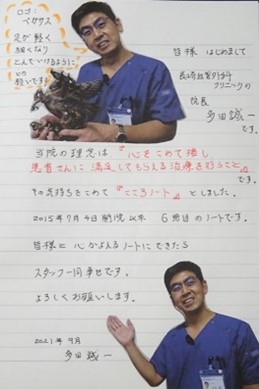 ロゴ：
ペガサス
足が軽く
細くなり
とんでいけるように
との
願いです！
皆様 はじめまして
長崎血管外科
クリニックの
院長
多田誠一
です。
当院の理念は 『心をこめて接し
患者さんに満足してもらえる治療を行うこと』
です。
その気持ちをこめて 『こころノート』 としました。
2015年9月4日開院以来 6冊目のノートです。
皆様と 心かよえるノートにできたら
スタッフ一同幸せです。
よろしくお願いします。
2021年 9月
多田誠一